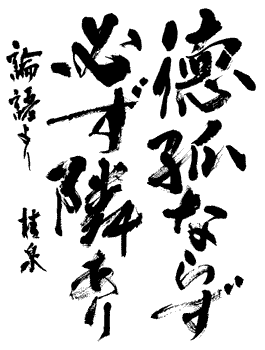 徳孤ならず
必ず隣あり
論語より
桂泉